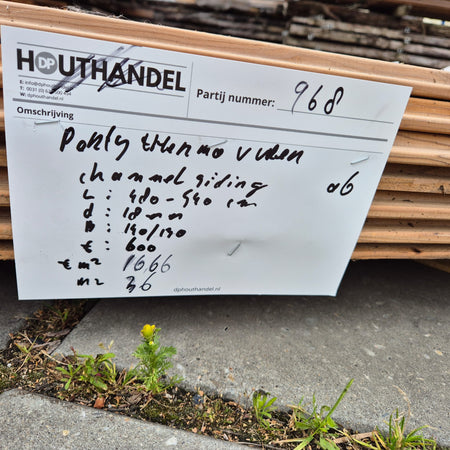 HOUTHANDEL
DP
E: info@dphou
W: dphouthandel.nl
Partij nummer: 968
Omschrijving
Partij thermo vuren
channel siding
06
L: 480-540 cm
d: 18 mm
B: 140/130
€: 600
€ m² 1666
m² 36
dphouthandel.nl